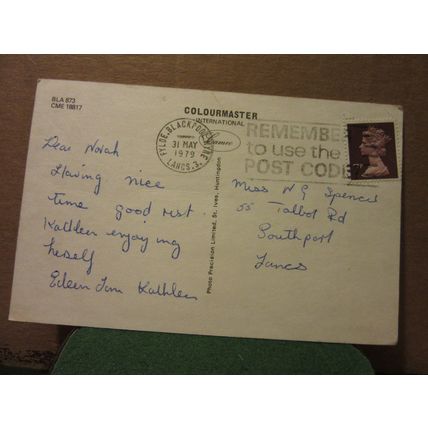 BLA 873
CME 18817
COLOURMASTER
INTERNATIONAL
FYLDE. BLACKPOOL
31 MAY
1979
LANCS. 3.
REMEMBER
to use the
POST CODE
Dear Norah
Having nice
time good rest
Kathleen enjoying
herself
Eileen Tom Kathleen
Photo Precision Limited, St. Ives, Huntingdon
Miss N G Spencer
55 Talbot Rd
Southport
Lancs